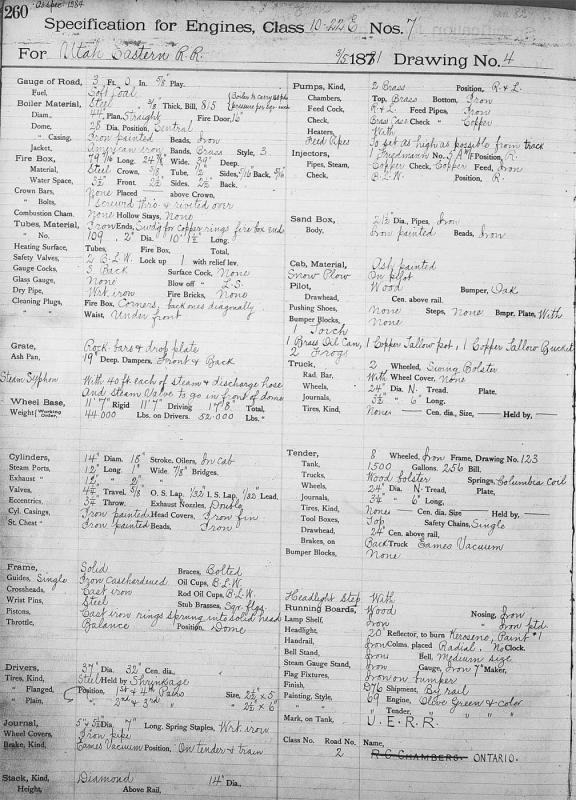 260
Specification for Engines, Class 10-22 E Nos. 7
For Utah Eastern R.R. 3/5 1881 Drawing No. 4
Gauge of Road, 3 Ft. 0 In. 5/8 Play.
Fuel, Soft Coal
Boiler Material, Steel 3/8 Thick, Bill, 815
Diam., 44" Plan, Straight Fire Door, 15"
Dome, 26 Dia. Position, Central
" Casing, Iron painted Beads, Iron
Jacket, American iron Bands, Brass Style, 3
Fire Box, 79 7/16 Long. 24 7/8 Wide. 39 Deep.
Material, Steel Crown, 3/8 Tube, 1/2 Sides, 5/16 Back, 5/16
Water Space, 3 1/2 Front. 2 1/2 Sides. 2 1/2 Back.
Crown Bars, None Placed above Crown,
" Bolts, Screwed thro. & riveted over
Combustion Cham. None Hollow Stays, None
Tubes, Material, Iron Ends, Sw'd'g for copper rings fire box end
" No. 109, 2" Dia. 10' 1 1/2" Long.
Heating Surface, Tubes, Fire Box, Total,
Safety Valves, 2 B.L.W. Lock up 1 with relief lev.
Gauge Cocks, 3 Back Surface Cock, None
Glass Gauge, None Blow off " L.S.
Dry Pipe, Wrt. iron Fire Bricks, None
Cleaning Plugs, Fire Box, Corners, back ones diagonally
" " Waist, Under front 6
Grate, Rock. bars & drop plate
Ash Pan, 19" Deep. Dampers, Front & Back
Steam Syphon With 40 ft each of steam & discharge hose
And steam valve to go in front of dome
Wheel Base, 11' 7" Rigid 11' 7" Driving 17' 8" Total,
Weight {Working Order, 44000 Lbs. on Drivers. 52.000 Lbs. "
Cylinders, 14" Diam. 18" Stroke. Oilers, In cab
Steam Ports, 12" Long. 1" Wide. 7/8" Bridges.
Exhaust " 12" " 2" "
Valves, Travel. O. S. Lap. 1/32 I. S. Lap. 1/32 Lead.
Eccentrics, Throw. Exhaust Nozzles, Double
Cyl. Casings, Iron painted Head Covers, Iron fin
St. Chest " Iron painted Beads, Iron
Frame, Solid Braces, Bolted
Guides, Single Iron Casehardened Oil Cups, B.L.W.
Crossheads, Cast iron Rod Oil Cups, B.L.W.
Wrist Pins, Steel Stub Brasses, Sqr. flgs.
Pistons, Cast iron rings sprung into solid head
Throttle, Balance Position, Dome
Drivers, 37" Dia. 32" Cen. dia.
Tires, Kind, Steel Held by Shrinkage
" Flanged, Position, 1st & 4th Pairs Size, 2 1/2" x 5"
" Plain, " 2nd & 3rd " " 2 1/2" x 6"
Journal, Dia. 7" Long. Spring Staples, Wrt. iron
Wheel Covers, Iron pipe
Brake, Kind, Eames Vacuum Position, On tender & train
Stack, Kind, Diamond 14" Dia.,
Height, Above Rail,
Pumps, Kind, 2 Brass Position, R & L.
Chambers, Top, Brass Bottom, Iron
Feed Cock, R & L. Feed Pipes, Iron
Check, Brass Case Check " Copper
Heaters, With
Feed Pipes To set as high as possible from track
Injectors, 1 Friedmann No. 5 Position, R.
Pipes, Steam, Copper Check, Copper Feed, Iron
Check, B.L.W. Position, R.
Sand Box, 2 1/2 Dia., Pipes, Iron
Body, Iron painted Beads, Iron
Cab, Material, Ash, painted
Snow Plow On pilot
Pilot, Wood Bumper, Oak
Drawhead, Cen. above rail.
Pushing Shoes, None Steps, None Bmpr. Plate, With
Bumper Blocks, None
1 Torch
1 Brass Oil Can, 1 Copper Tallow pot, 1 Copper Tallow Bucket
2 Frogs
Truck, 2 Wheeled, Swing Bolster
Rad. Bar, With Wheel Cover, None
Wheels, 24" Dia. N. Tread. Plate,
Journals, 3 1/2" " 6" Long.
Tires, Kind, None Cen. dia., Size, Held by,
Tender, 8 Wheeled, Iron Frame, Drawing No. 123
Tank, 1500 Gallons. 256 Bill.
Trucks, Wood bolster Springs, Columbia Coil
Wheels, 24" Dia. N. Tread. Plate,
Journals, 3 3/4" " 6" Long.
Tires, Kind, None Cen. dia. Size Held by,
Tool Boxes, Top Safety Chains, Single
Drawhead, 24" Cen. above rail,
Brakes, on Back Truck Eames Vacuum
Bumper Blocks, None
Headlight Step With
Running Boards, Wood Nosing, Iron
Lamp Shelf, Iron " Iron ptd.
Headlight, 20" Reflector, to burn Kerosene, Paint #1
Handrail, Iron Colms. placed Radial. No Clock.
Bell Stand, Iron Bell, Medium size
Steam Gauge Stand, Iron Gauge, Iron 7" Maker,
Flag Fixtures, Iron on bumper
Finish, D76 Shipment, By rail
Painting, Style, 69 Engine, Olive Green & color
" " " Tender, " " "
Mark, on Tank, U.E.R.R.
Class No. Road No. Name,
2 R C CHAMBERS. ONTARIO.